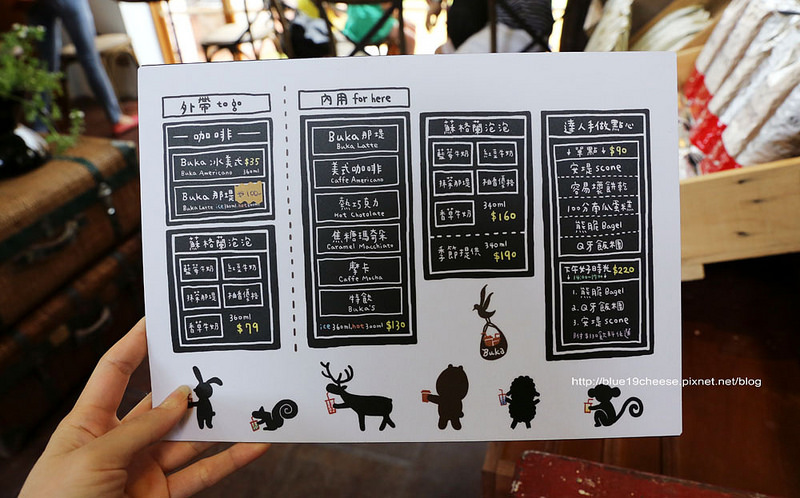 外帶 to go
咖啡
Buka 冰美式 $35
Buka Americano 360ml
Buka 那堤 100
Buka Latte
蘇格蘭泡泡
藍莓牛奶 紅豆牛奶
抹茶那堤 柚香優格
香草牛奶 360ml $79
內用 for here
Buka 那堤
Buka Latte
美式咖啡
Caffe Americano
熱巧克力
Hot Chocolate
焦糖瑪奇朵
Caramel Macchiato
摩卡
Caffe Mocha
特飲
Buka's
ice 360ml, hot 300ml $130
蘇格蘭泡泡
藍莓牛奶 紅豆牛奶
抹茶那堤 柚香優格
香草牛奶 340ml $160
季節提供 340ml $190
Buka
達人手做點心
↓單點↓ $90
安堤 scone
容易環餅乾
100分南瓜蛋糕
熊熊 Bagel
Q牙飯糰
下午好時光 $220
1. 熊熊 Bagel
2. Q牙飯糰
3. 安堤 scone
http://blue19cheese.pixnet.net/blog